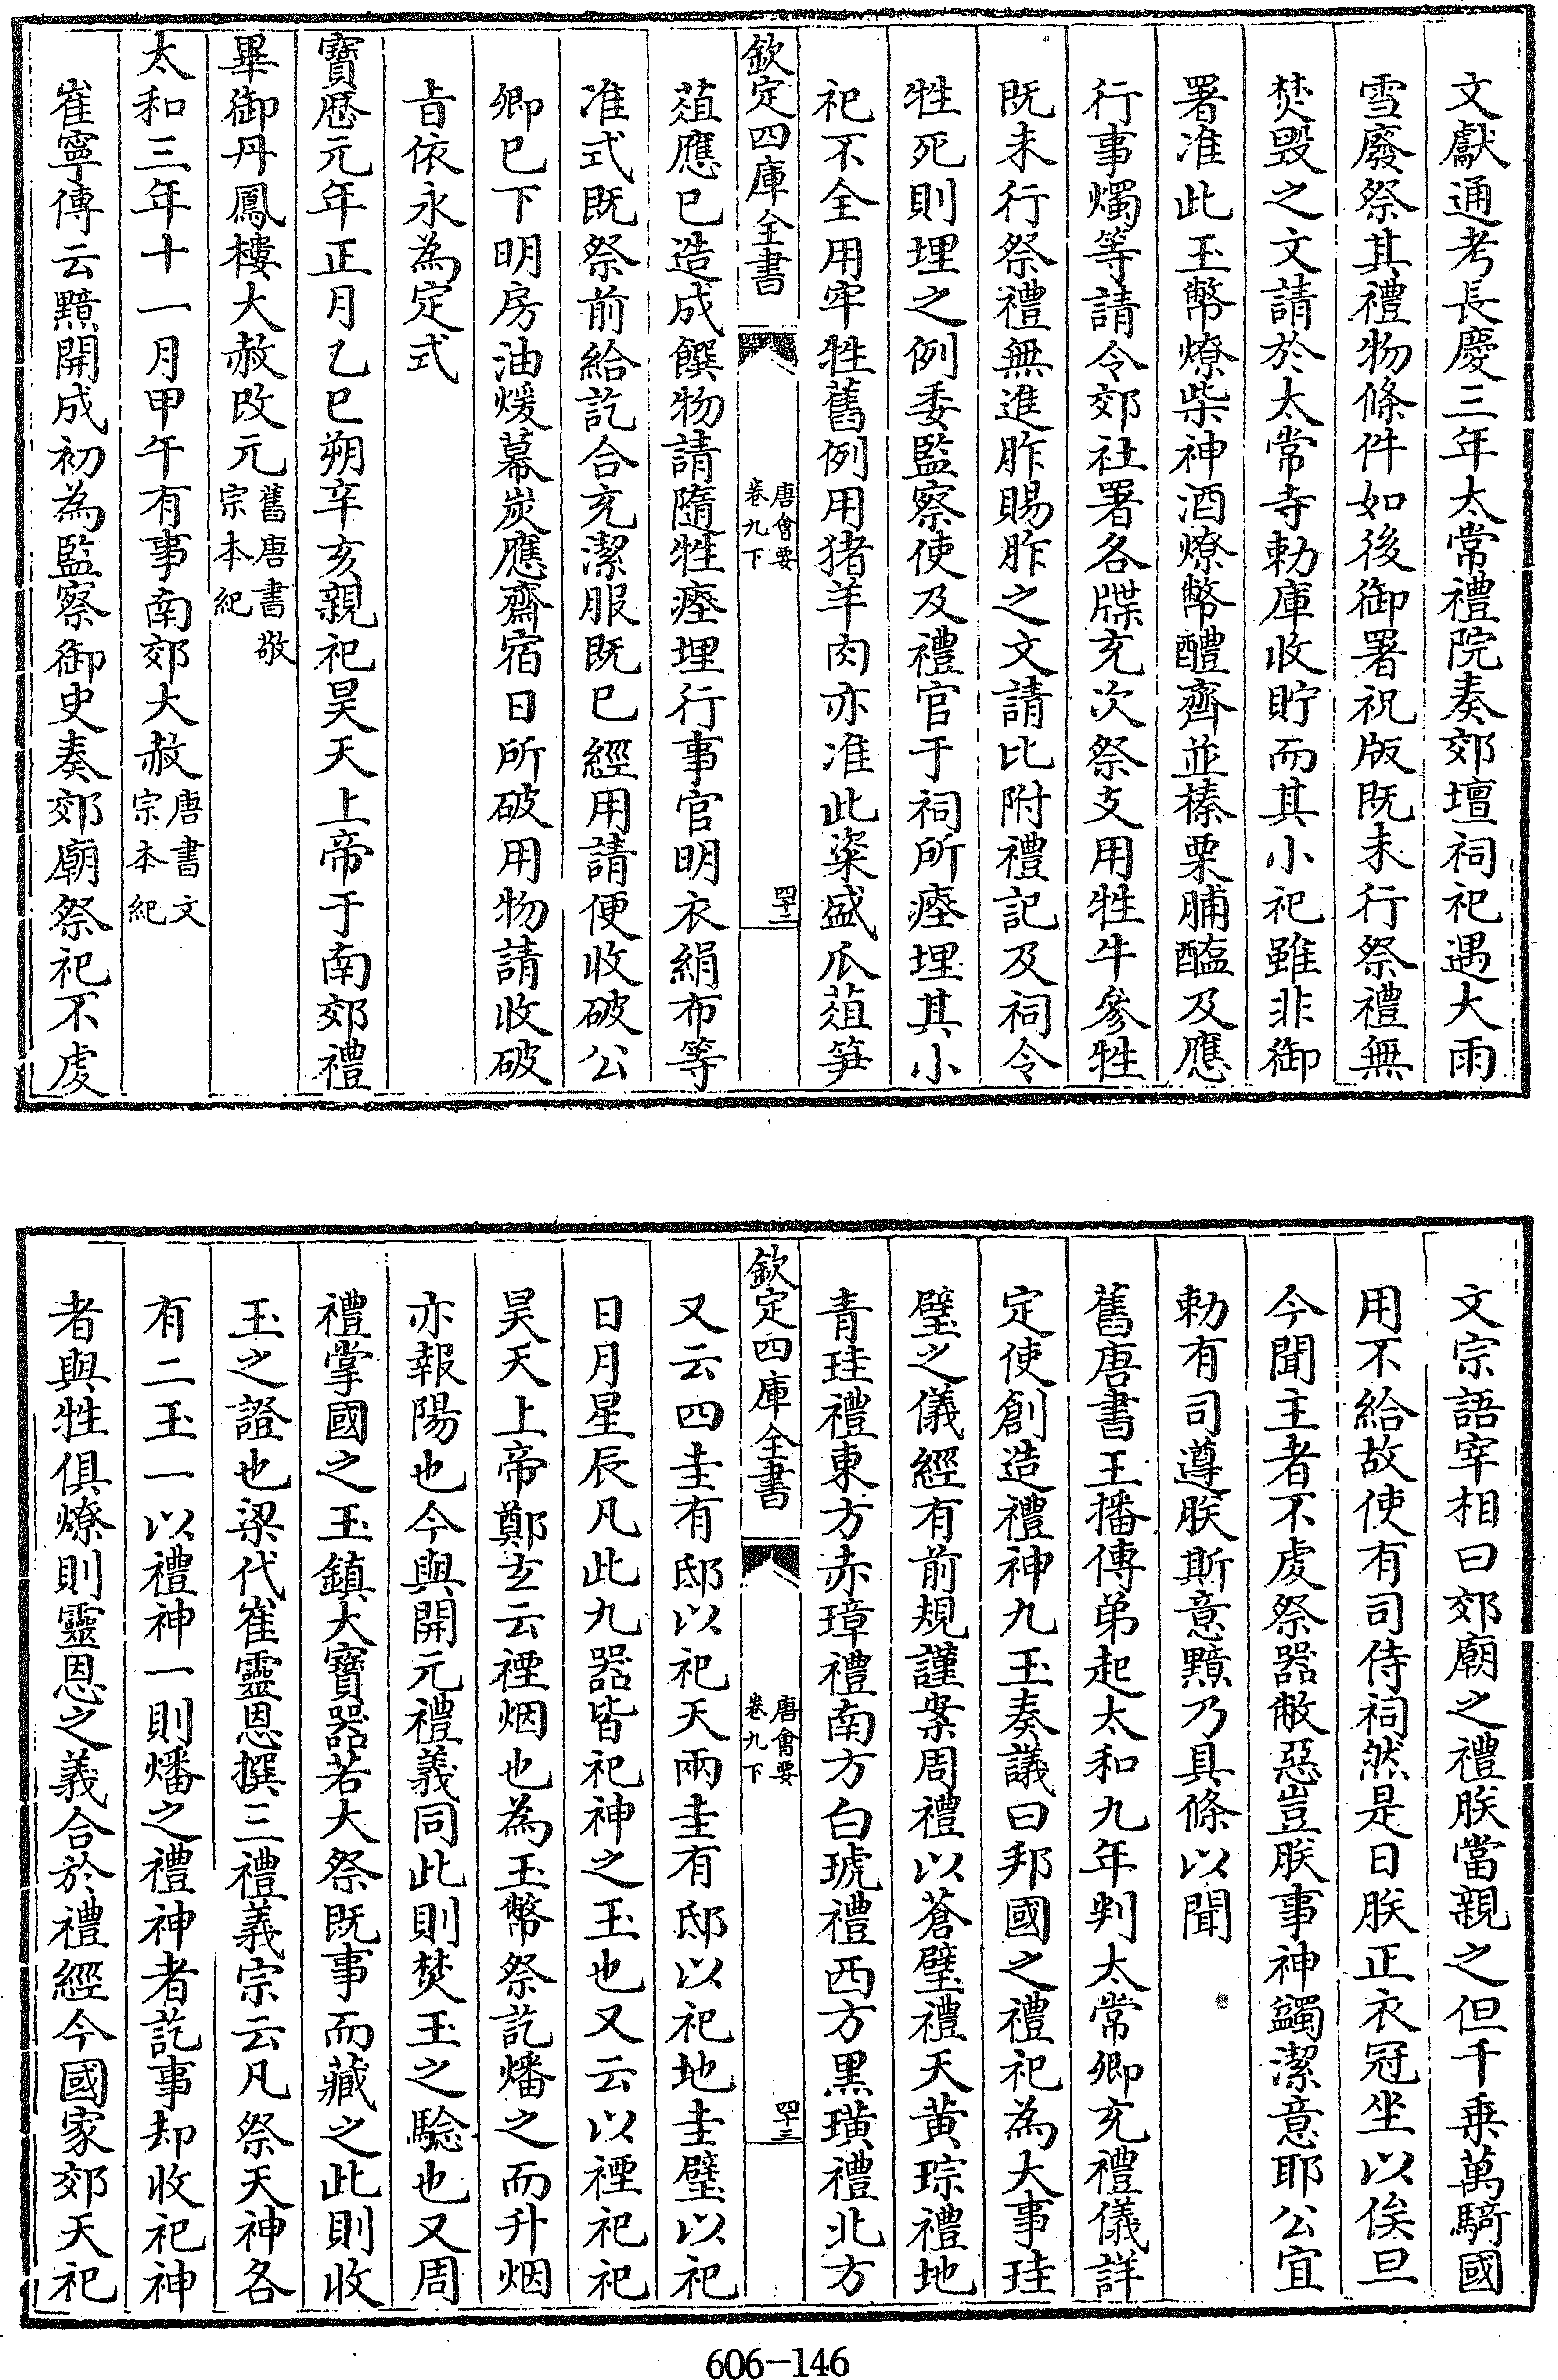 文獻通考長慶三年太常禮院奏郊壇祠祀遇大雨
雪廢祭其禮物條件如後御署祝版既未行祭禮無
焚毀之文請於太常寺勅庫收貯而其小祀雖非御
署准此玉幣燎柴神酒燎幣醴齊並榛栗脯醢及應
行事燭等請令郊社署各牒充次祭支用牲牛參牲
既未行祭禮無進胙賜胙之文請比附禮記及祠令
牲死則埋之例委監察使及禮官于祠所瘞埋其小
祀不全用牢牲舊例用猪羊肉亦准此粢盛瓜葅笋
欽定四庫全書
唐會要
卷九下
四十二
葅應已造成饌物請隨牲瘞埋行事官明衣絹布等
准式既祭前給訖合充潔服既已經用請便收破公
卿已下明房油煖幕炭應齋宿日所破用物請收破
㫖依永為定式
寶厯元年正月乙巳朔辛亥親祀昊天上帝于南郊禮
畢御丹鳳樓大赦改元舊唐書敬
宗本紀
太和三年十一月甲午有事南郊大赦唐書文
宗本紀
崔寧傳云黯開成初為監察御史奏郊廟祭祀不虔
文宗語宰相曰郊廟之禮朕當親之但千乗萬騎國
用不給故使有司侍祠然是日朕正衣冠坐以俟旦
今聞主者不虔祭器敝惡豈朕事神蠲潔意耶公宜
勅有司遵朕斯意黯乃具條以聞
舊唐書王播傳弟起太和九年判太常卿充禮儀詳
定使創造禮神九玉奏議曰邦國之禮祀為大事珪
璧之儀經有前規謹案周禮以蒼璧禮天黄琮禮地
青珪禮東方赤璋禮南方白琥禮西方黒璜禮北方
欽定四庫全書
唐會要
卷九下
四十三
又云四圭有邸以祀天兩圭有邸以祀地圭璧以祀
日月星辰凡此九器皆祀神之玉也又云以禋祀祀
昊天上帝鄭玄云禋烟也為玉幣祭訖燔之而升烟
亦報陽也今與開元禮義同此則焚玉之驗也又周
禮掌國之玉鎮大寶器若大祭既事而藏之此則收
玉之證也梁代崔靈恩撰三禮義宗云凡祭天神各
有二玉一以禮神一則燔之禮神者訖事却收祀神
者與牲俱燎則靈恩之義合於禮經今國家郊天祀
606-146